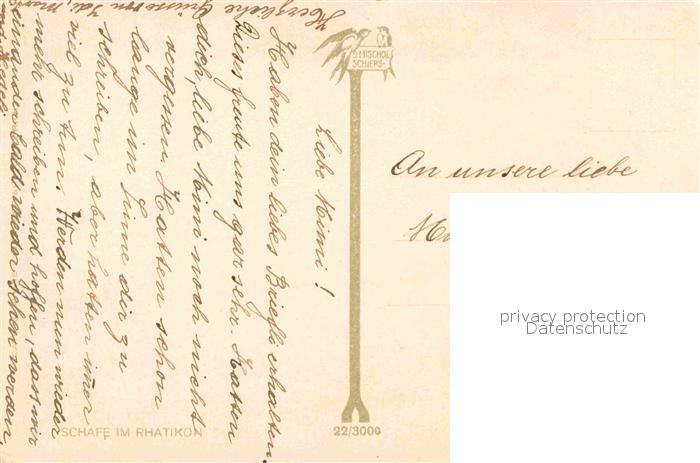 Liebe Mimi!
Haben dein liebes Briefle erhalten.
Diess freute uns gar sehr. Hatten
dich, liebe Mimi noch nicht
vergessen. Hatten schon
lange im Sinne dir zu
schreiben, aber hatten im̄er
viel zu tun. Werden nun wieder
mehr schreiben und hoffen, dass wir
einander bald wieder sehen werden.
Herzliche Grüsse von
D. MISCHOL
SCHIERS
An unsere liebe
privacy protection
Datenschutz
SCHAFE IM RHÄTIKON
22/3000